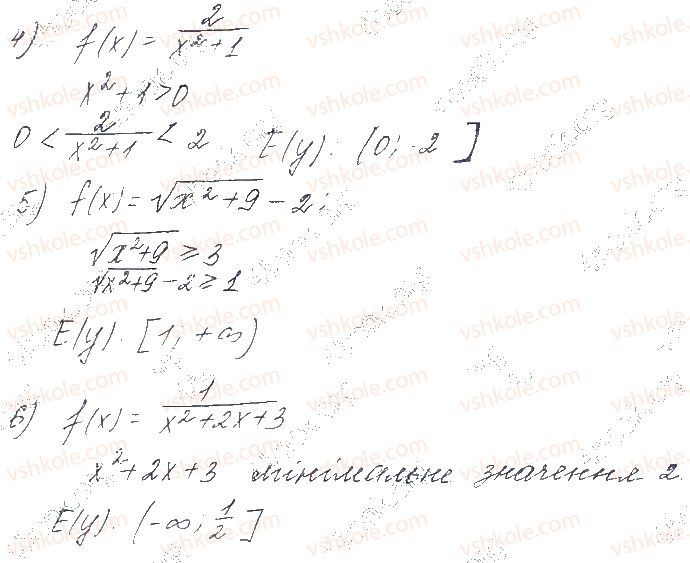 4) f(x) = 2/(x²+1)
x²+1>0
0 < 2/(x²+1) < 2 E(y). (0; 2]
5) f(x) = √(x²+9) - 2;
√(x²+9) ≥ 3
√(x²+9) - 2 ≥ 1
E(y). [1; +∞)
6) f(x) = 1/(x²+2x+3)
x²+2x+3 мінімальне значення 2.
E(y). (-∞; 1/2]